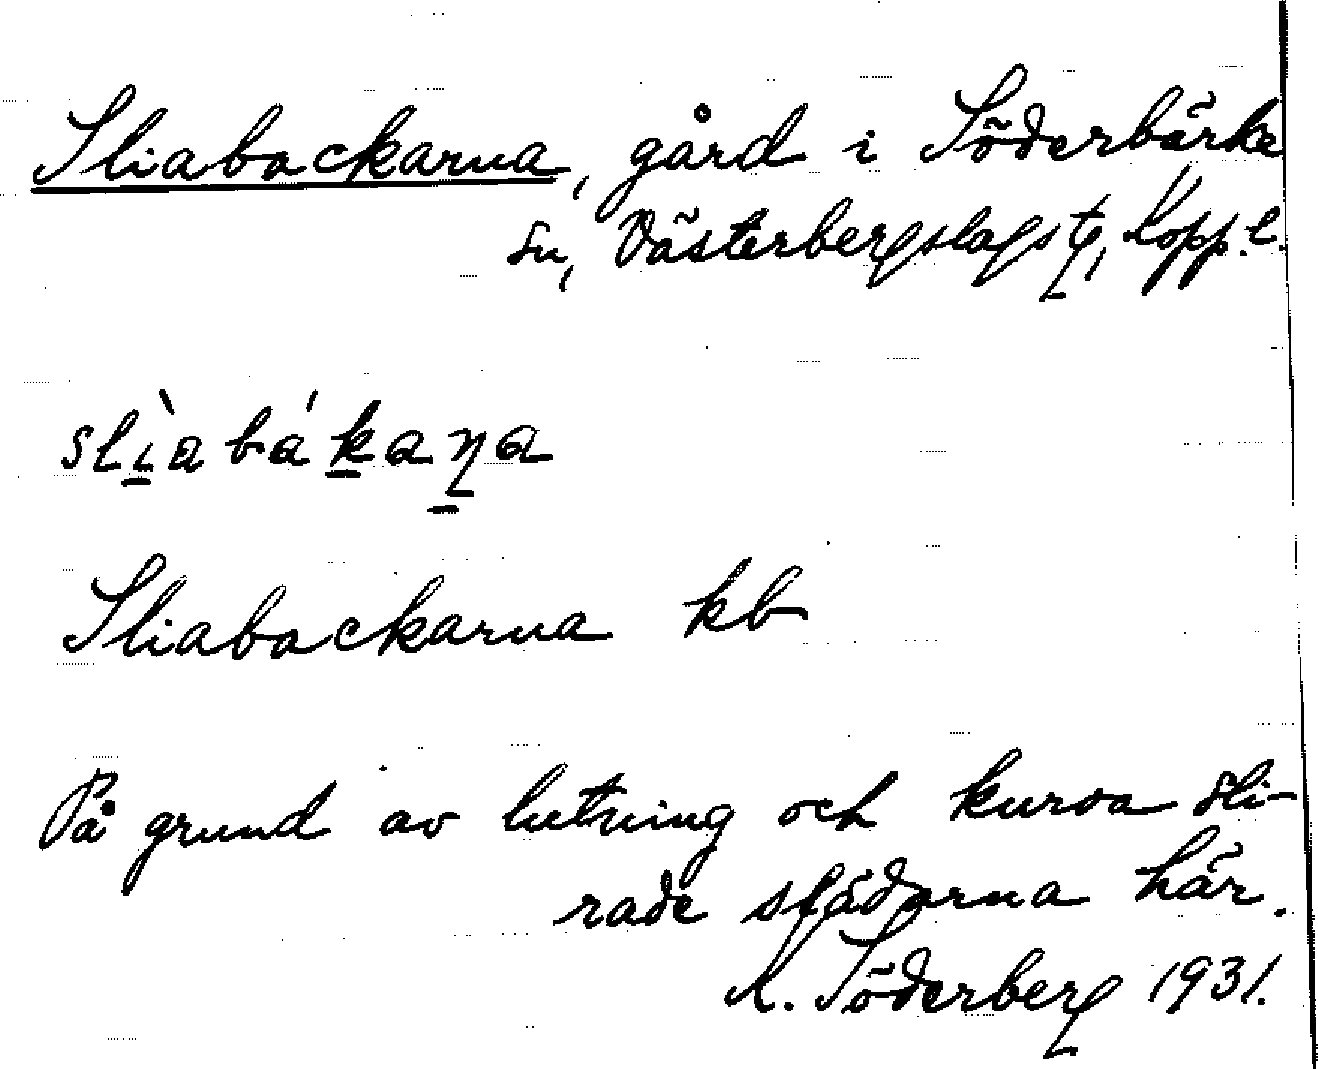 Sliabackarna, gård i Söderbärke
sn, Västerbergslags t, Kopp. l.
slìabákaṇa
Sliabackarna kb
På grund av lutning och kurva sli-
rade slädarna här.
K. Söderberg 1931.